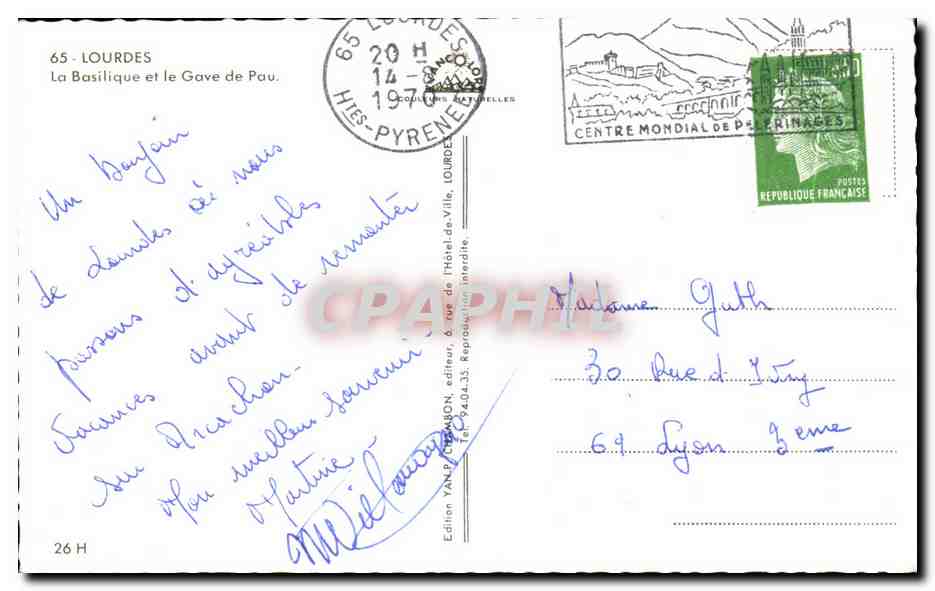 65 - LOURDES
La Basilique et le Gave de Pau.
65 LOURDES
20 H
14 -
1970
HTES-PYRENEES
COULEURS NATURELLES
CENTRE MONDIAL DE PELERINAGES
POSTES
REPUBLIQUE FRANÇAISE
Un bonjour
de Lourdes où nous
passons d'agréables
vacances avant de remonter
sur Arcachon.
Mon meilleur souvenir
Martine
26 H
Edition YAN.P. CHAMBON, editeur, 6, rue de l'Hôtel-de-Ville, LOURDES
Tel. 94-04-35. Reproduction interdite.
CPAPHIL
Madame Guth
30 Rue d'Ivry
69 Lyon 3eme